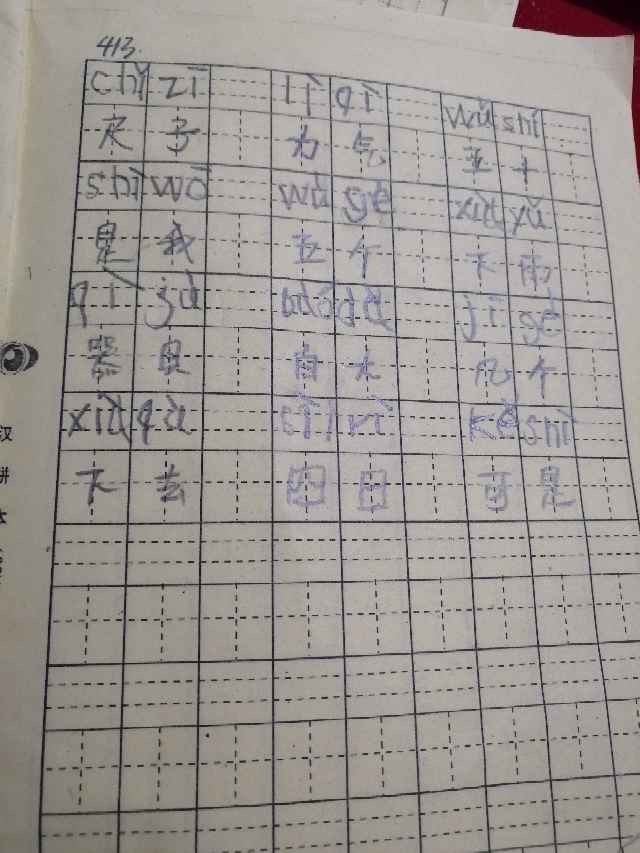 413.
chǐ zī lì qì wǔ shí
尺子 力气 五十
shì wǒ wǔ gè xià yǔ
是我 五个 下雨
qì jù dà jǐ gè
器具 自大 几个
xià qù sì rì kě shì
下去 四日 可是
汉
拼
本